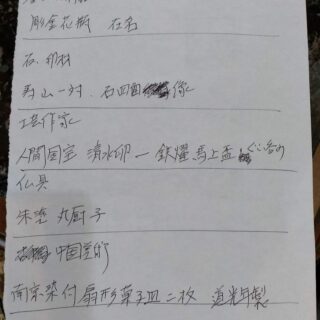 彫金花瓶 在名
石
寿山一対、石四面像
工芸作家
人間国宝 清水卯一 鉄燿馬上盃
仏具
朱塗 丸厨子
中国美術
南京染付 扇形菓子皿 二枚 道光年製